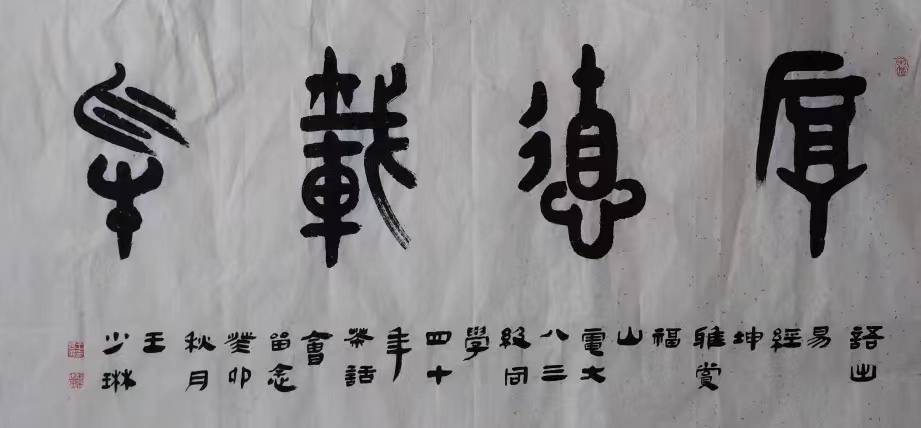 厚德載物
語出
易
經
坤
雅賞
福
山
電大
八三
級同
學
四十
年
茶話
會
留念
癸卯
秋月
王
少琳